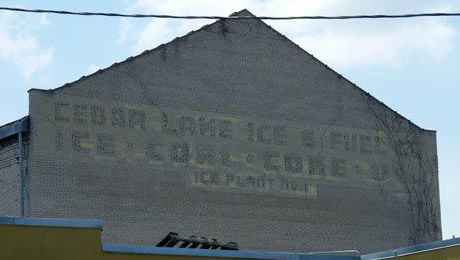 CEDAR LAKE ICE & FUEL
ICE · COAL · COKE · O
ICE PLANT NO. 1